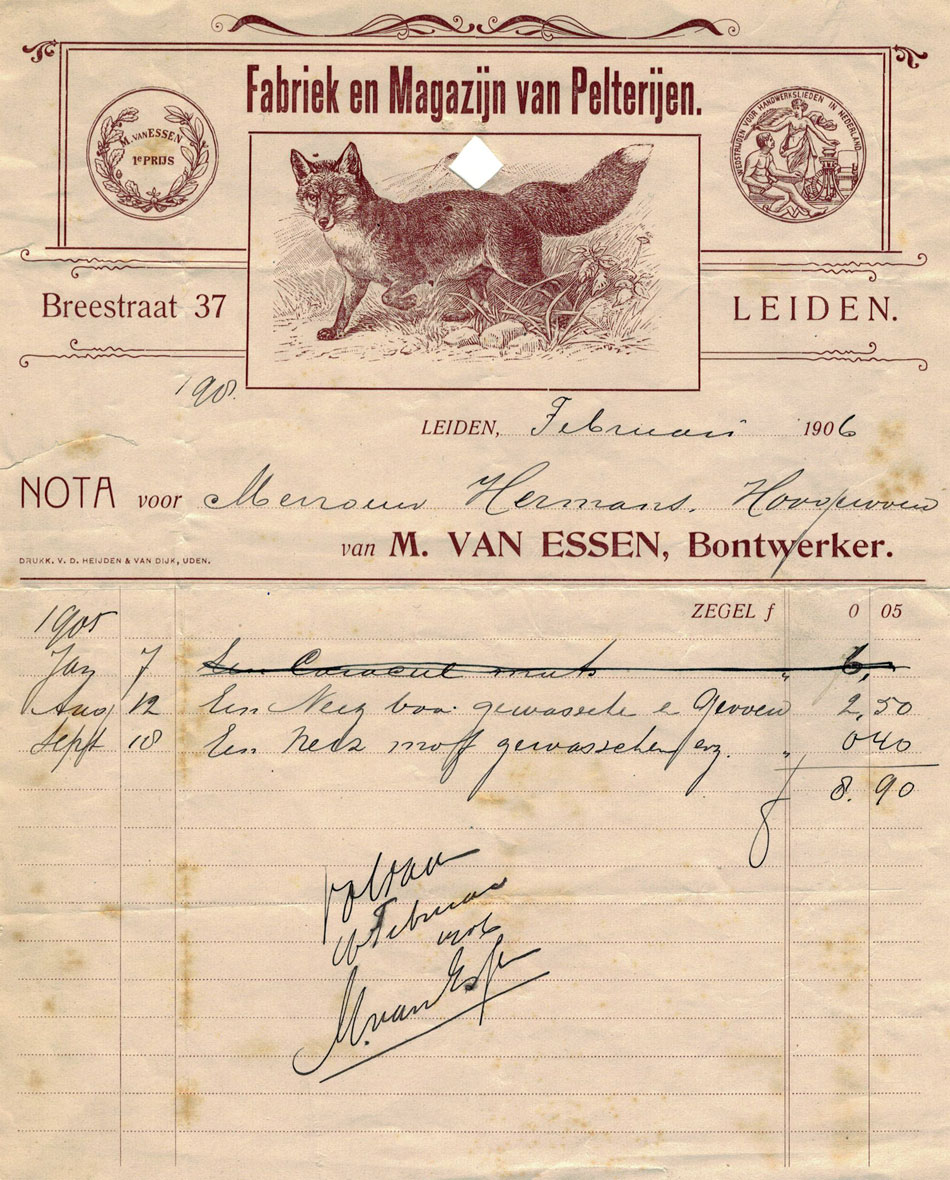 Fabriek en Magazijn van Pelterijen.
M. VAN ESSEN
1e PRIJS
WEDSTRIJDEN VOOR HANDWERKSLIEDEN IN NEDERLAND
Breestraat 37
LEIDEN.
190.
LEIDEN, Februari 1906
NOTA voor Mevrouw Hermans.
van M. VAN ESSEN, Bontwerker.
DRUKK. V. D. HEIJDEN & VAN DIJK, UDEN.
ZEGEL f 0 05
1905
Jan 7 Een Caracul muts " 6,
Aug 12 Een Nerz boa gewassche e 2,50
Sept 18 Een Nerz moff gewasschen enz. " 0 40
f 8. 90
voldaan
Februari
1906
M. van Essen